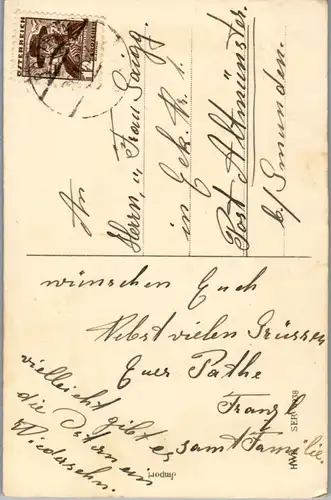 ÖSTERREICH
12
An
Herrn u Frau Gaigg.
in Eck Nr 1.
Post Altmünster
b/ Gmunden.
wünschen Euch
Nebst vielen Grüssen
Euer Pathe
Franzl
samt Familie.
vielleicht gibt es
die Ostern ein
Wiedersehn.
Import
HWB SER